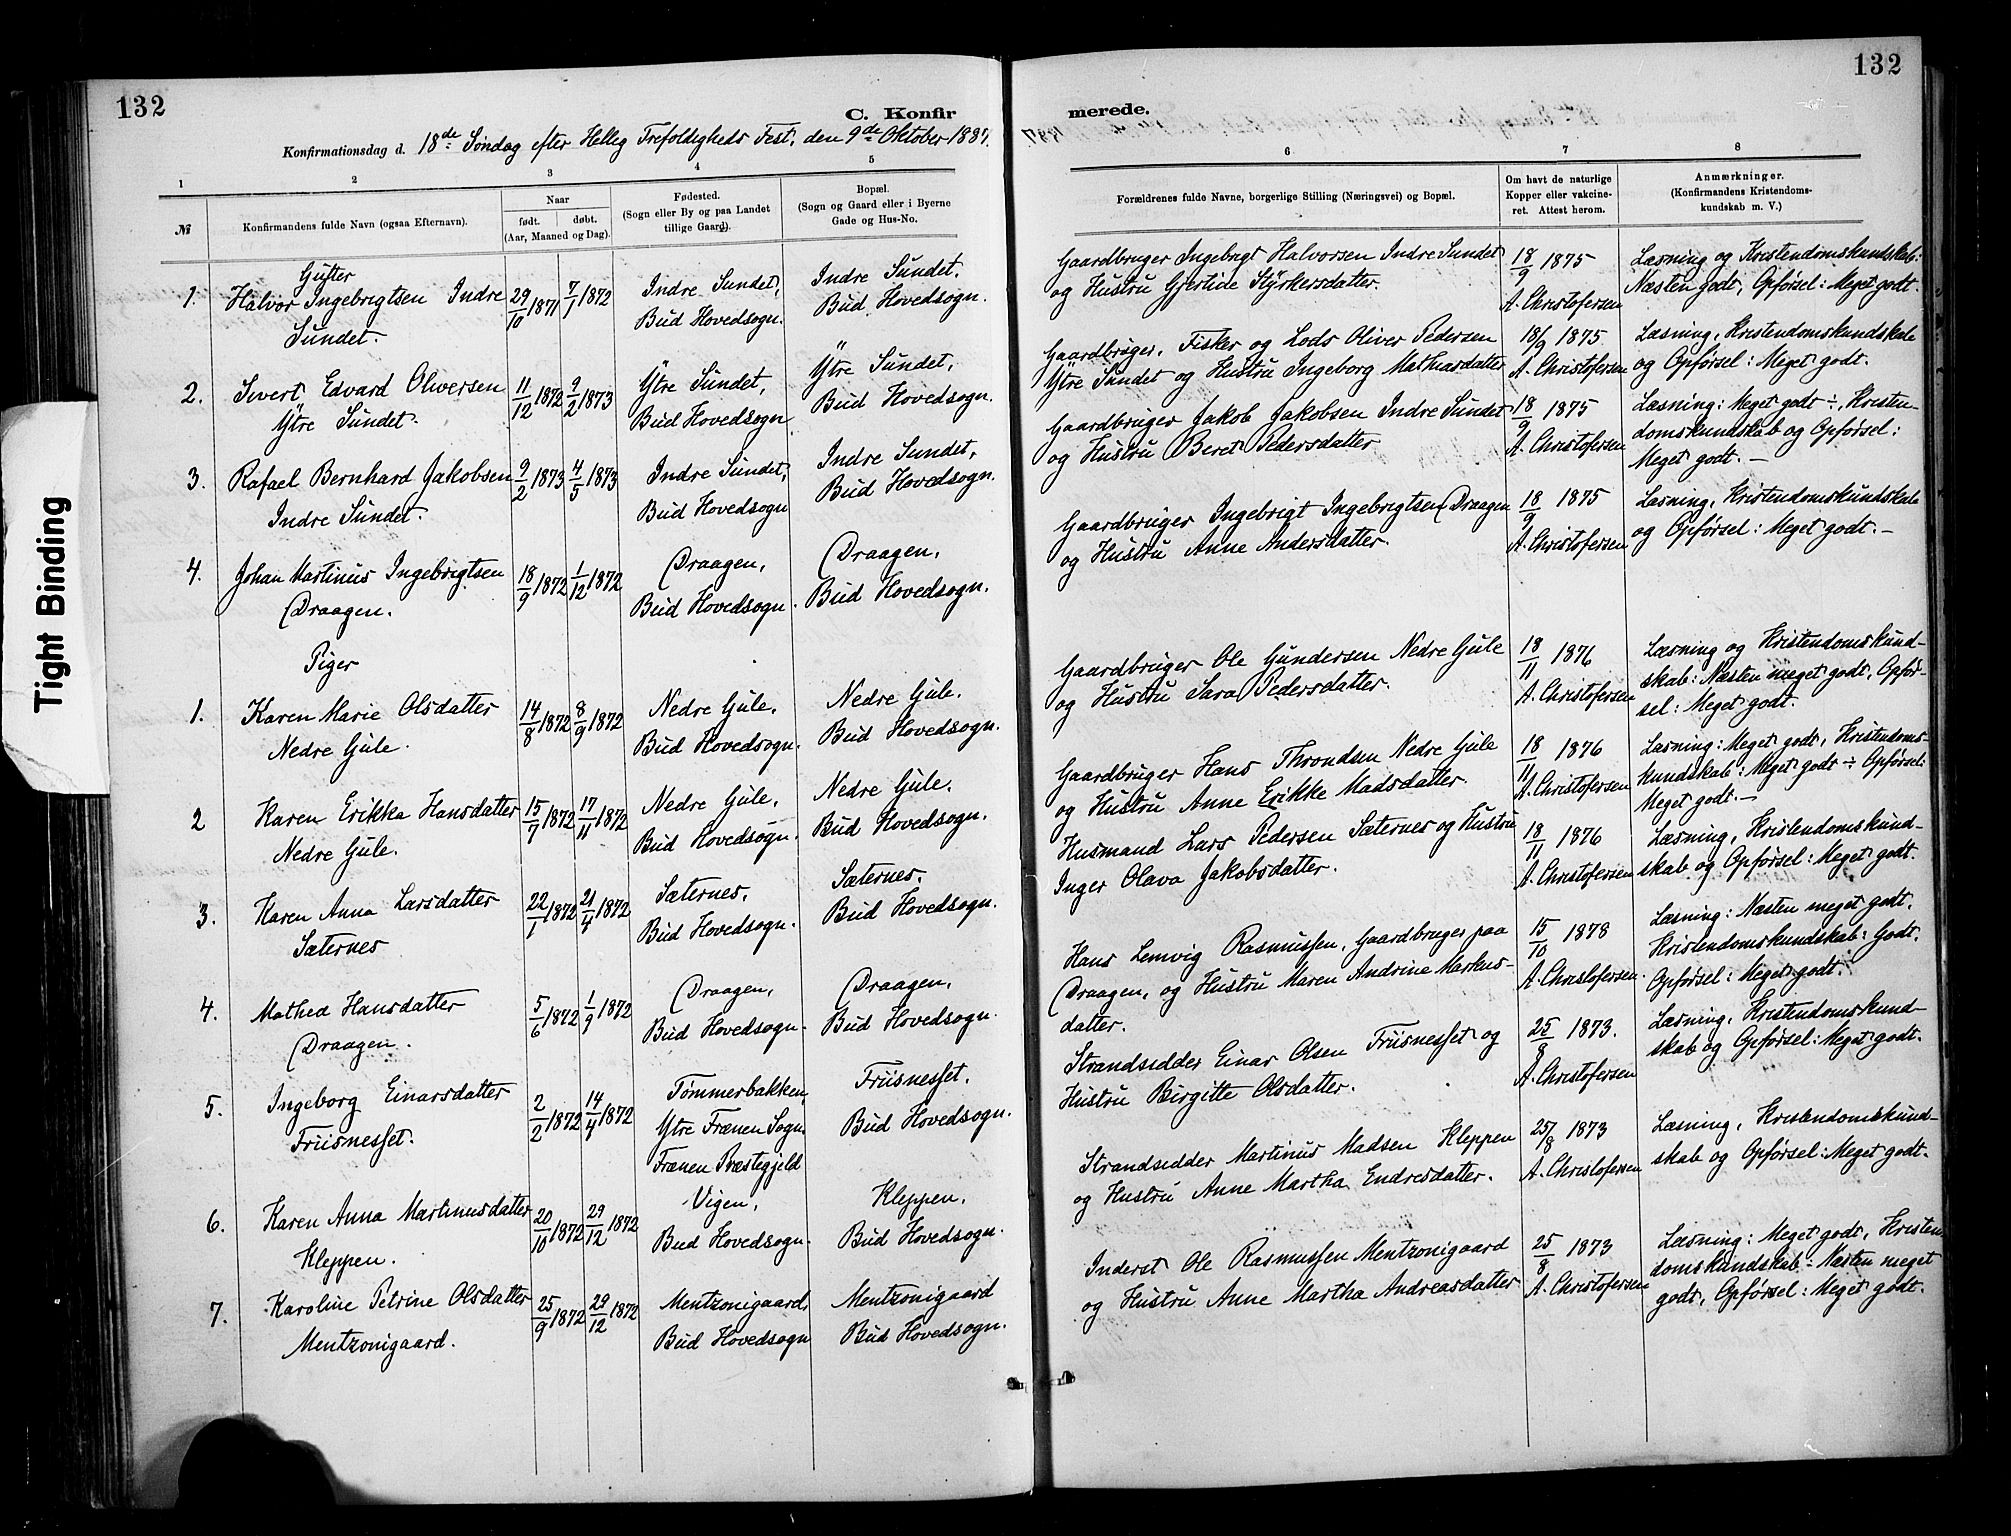 132
132
C. Konfir
merede.
Konfirmationsdag d. 18de Søndag efter Hellig Trefoldigheds Fest, den 9de Oktober 1887.
1 2 3 4 5
6 7 8
№
Konfirmandens fulde Navn (ogsaa Efternavn).
Naar
født. døbt.
(Aar, Maaned og Dag).
Fødested.
(Sogn eller By og paa Landet
tillige Gaard).
Bopæl.
(Sogn og Gaard eller i Byerne
Gade og Hus-No.
Forældrenes fulde Navne, borgerlige Stilling (Næringsvei) og Bopæl.
Om havt de naturlige
Kopper eller vakcine-
ret. Attest herom.
Anmærkninger.
(Konfirmandens Kristendoms-
kundskab m. V.)
Gutter
1. Halvor Ingebrigtsen Indre
Sundet.
29/10 1871 7/1 1872
Indre Sundet,
Bud Hovedsogn.
Indre Sundet.
Bud Hovedsogn.
Gaardbruger Ingebrigt Halvorsen Indre Sundet
og Hustru Gjertine Styrkersdatter.
18/9 1875
A. Christofersen
Læsning og Kristendomskundskab:
Næsten godt, Opførsel: Meget godt.
2. Sivert Edvard Oliversen
Ytre Sundet.
11/12 1872 9/2 1873
Ytre Sundet,
Bud Hovedsogn
Ytre Sundet,
Bud Hovedsogn.
Gaardbruger, Fisker og Lods Oliver Pedersen
Ytre Sundet og Hustru Ingeborg Mathiasdatter
18/9 1875
A. Christofersen
Læsning, Kristendomskundskab
og Opførsel: Meget godt.
3. Rafael Bernhard Jakobsen
Indre Sundet.
9/2 1873 4/5 1873
Indre Sundet,
Bud Hovedsogn
Indre Sundet,
Bud Hovedsogn.
Gaardbruger Jakob Jakobsen Indre Sundet
og Hustru Beret Pedersdatter
18/9 1875
A. Christofersen
Læsning: Meget godt ÷, Kristen-
domskundskab og Opførsel:
Meget godt. –
4. Johan Martinus Ingebrigtsen
Draagen.
18/9 1872 1/12 1872
Draagen,
Bud Hovedsogn.
Draagen,
Bud Hovedsogn.
Gaardbruger Ingebrigt Ingebrigtsen Draagen
og Hustru Anne Andersdatter.
18/9 1875
A. Christofersen
Læsning, Kristendomskundskab
og Opførsel: Meget godt. –
Piger
1. Karen Marie Olsdatter
Nedre Gule.
14/8 1872 8/9 1872
Nedre Gule,
Bud Hovedsogn.
Nedre Gule.
Bud Hovedsogn.
Gaardbruger Ole Gundersen Nedre Gule
og Hustru Sara Pedersdatter.
18/11 1876
A. Christofersen
Læsning og Kristendomskund-
skab: Næsten meget godt, Opfør-
sel: Meget godt.
2 Karen Erikka Hansdatter
Nedre Gule.
15/7 1872 17/11 1872
Nedre Gule,
Bud Hovedsogn.
Nedre Gule.
Bud Hovedsogn.
Gaardbruger Hans Throndsen Nedre Gule
og Hustru Anne Erikke Madsdatter.
18/11 1876
A. Christofersen
Læsning: Meget godt, Kristendoms-
kundskab: Meget godt ÷ Opførsel:
Meget godt. –
3. Karen Anna Larsdatter
Sæternes
22/1 1872 21/4 1872
Sæternes,
Bud Hovedsogn.
Sæternes.
Bud Hovedsogn.
Husmand Lars Pedersen Sæternes og Hustru
Inger Olava Jakobsdatter.
18/11 1876
A. Christofersen
Læsning, Kristendomskund-
skab og Opførsel: Meget godt.
4. Mathea Hansdatter
Draagen.
5/6 1872 1/9 1872
Draagen,
Bud Hovedsogn.
Draagen,
Bud Hovedsogn.
Hans Lemvig Rasmussen, Gaardbruger paa
Draagen, og Hustru Maren Andrine Markus-
datter.
15/10 1878
A. Christofersen.
Læsning: Næsten meget godt.
Kristendomskundskab: Godt.
Opførsel: Meget godt.
5. Ingeborg Einarsdatter
Friisnesset.
2/2 1872 14/4 1872
Tømmerbakken,
Ytre Frænen Sogn,
Frænen Præstegjeld
Friisnesset.
Bud Hovedsogn.
Strandsidder Einar Olsen Friisnesset og
Hustru Birgitte Olsdatter.
25/8 1873.
A. Christofersen
Læsning, Kristendomskund-
skab og Opførsel: Meget godt.
6. Karen Anna Martinusdatter
Kleppen.
20/10 1872 29/12 1872
Vigen,
Bud Hovedsogn.
Kleppen,
Bud Hovedsogn.
Strandsidder Martinus Madsen Kleppen
og Hustru Anne Martha Endresdatter.
25/8 1873
A. Christofersen
Læsning, Kristendomskund-
skab og Opførsel: Meget godt.
7. Karoline Petrine Olsdatter
Mentzonigaard.
25/9 1872 29/12 1872
Mentzonigaard,
Bud Hovedsogn
Mentzonigaard
Bud Hovedsogn.
Inderst Ole Rasmussen Mentzonigaard
og Hustru Anne Martha Andreasdatter
25/8 1873
A. Christofersen
Læsning: Meget godt, Kristen
domskundskab: Næsten meget
godt, Opførsel: Meget godt.
Tight Binding